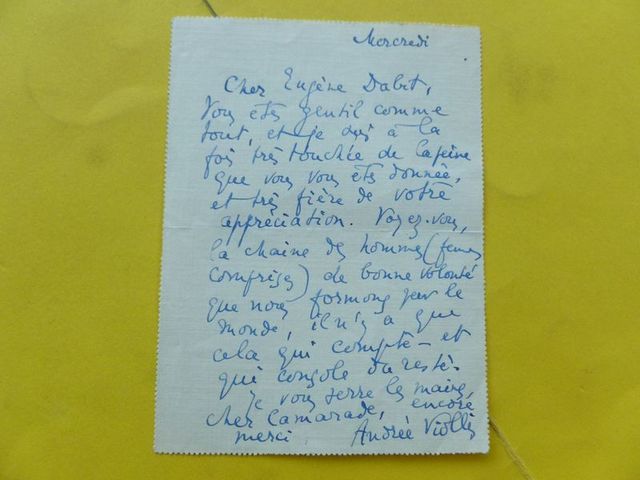 Mercredi
Cher Eugène Dabit,
Vous êtes gentil comme
tout, et je suis à la
fois très touchée de la peine
que vous vous êtes donnée,
et très fière de votre
appréciation. Voyez-vous,
la chaine des hommes (femmes
comprises) de bonne volonté
que nous formons par le
monde, il n'y a que
cela qui compte - et
qui console du reste.
Je vous serre les mains,
cher Camarade, encore
merci. Andrée Viollis